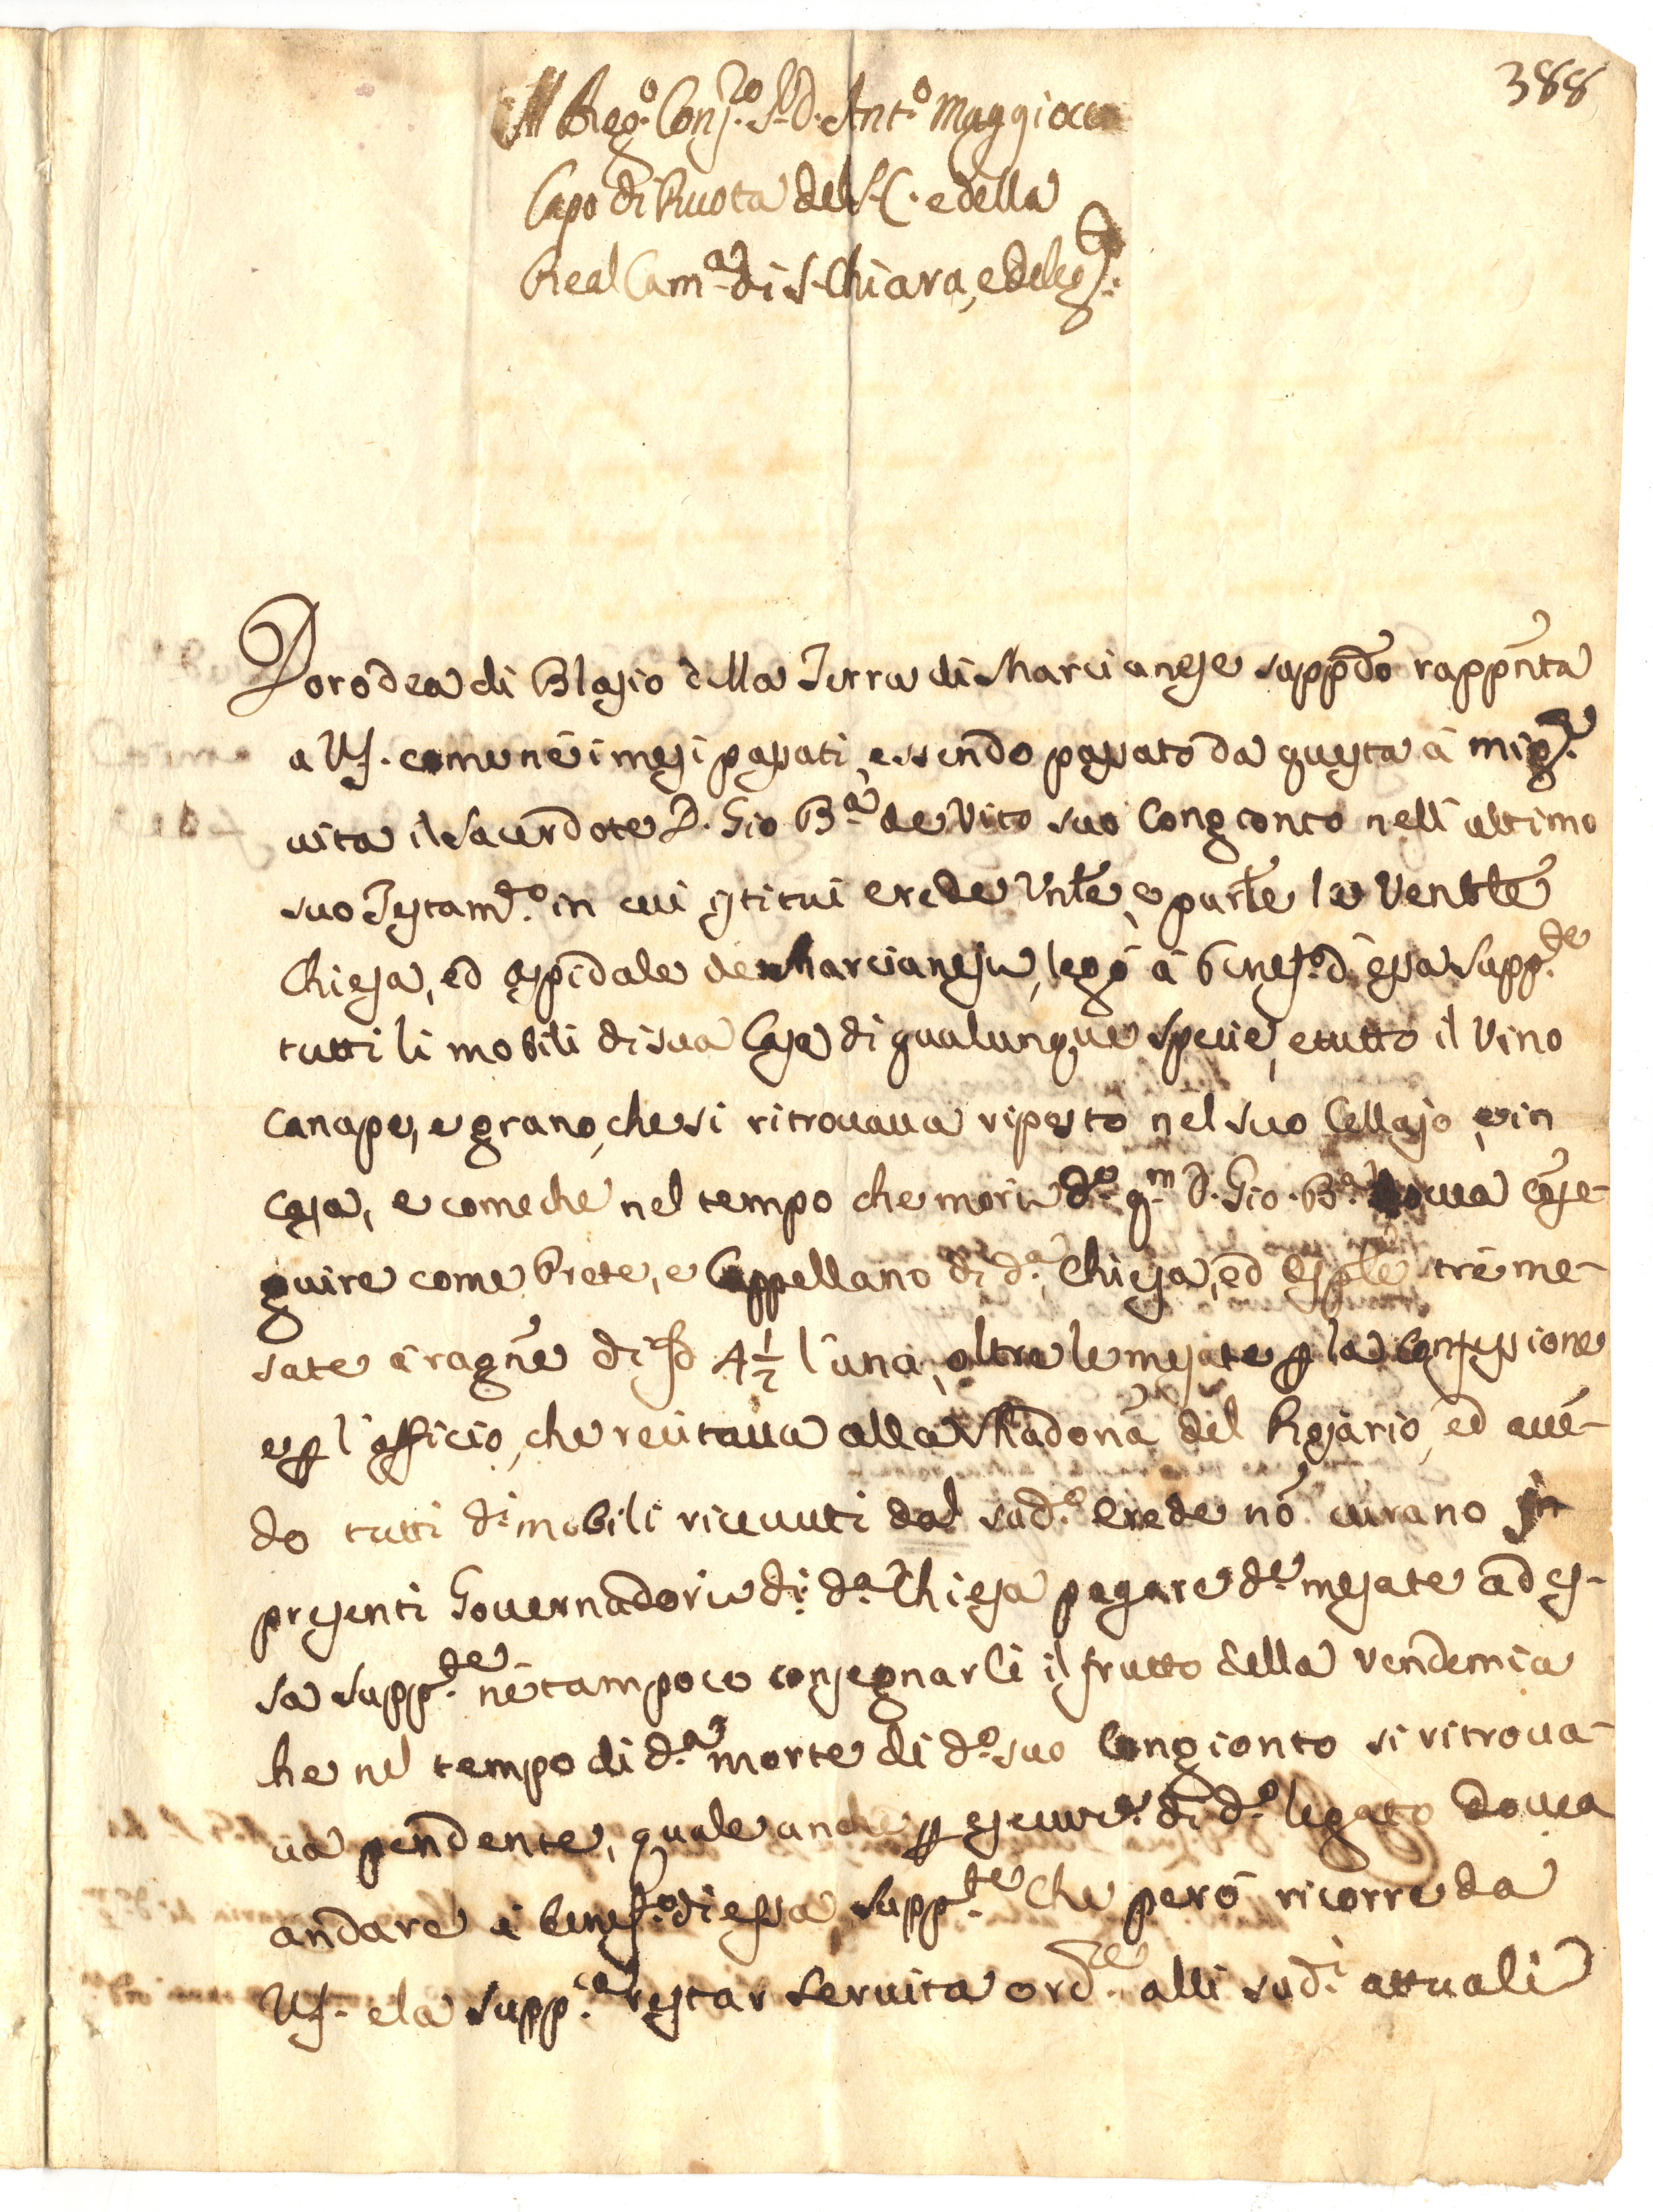 388
Il Reg.o Cons.ro S.r D. Ant.o Maggiocco
Capo di Ruota del S.C. e della
Real Cam.a di S. Chiara, e Deleg.to
Dorodea di Blasio della Terra di Marcianese supp.do rapp.nta
a VS. come né i mesi passati, essendo passato da questa à mig.r
vita il Sacerdote D. Gio B.a de Vito suo Congionto nell'ultimo
suo Testam.to in cui istituì erede Unle, e parle la Venble
Chiesa, ed Ospidale de Marcianesi, legò à benef.o d'essa Supp.te
tutti li mobili di sua Casa di qualunque specie, e tutto il Vino
canape, e grano, che si ritrovava riposto nel suo Cellajo, e in
casa, e come che nel tempo che morì d.o q.m D. Gio. B.a dovea conse-
guire come Prete, e Cappellano di d.a Chiesa, ed Osple trè me-
sate à ragne di d. 4 1/2 l'una, oltre le mesate p la Confessione
e p l'officio, che recitava alla Madona del Rosario, ed avé-
do tutti d.i mobili ricevuti dal sud.o Erede nó curano
presenti Governadori di d.a Chiesa pagare d.e mesate ad es-
sa supp.te né tampoco consegnarli il frutto della vendemia
he nel tempo di d.a morte di d.o suo Congionto si ritrova-
va pendente, quale anche p esecuz.e di d.o legato dovea
andare à benef.o di essa supp.te Che però ricorre da
VS. e la supp.ca restar servita ord.re alli sud.i attuali